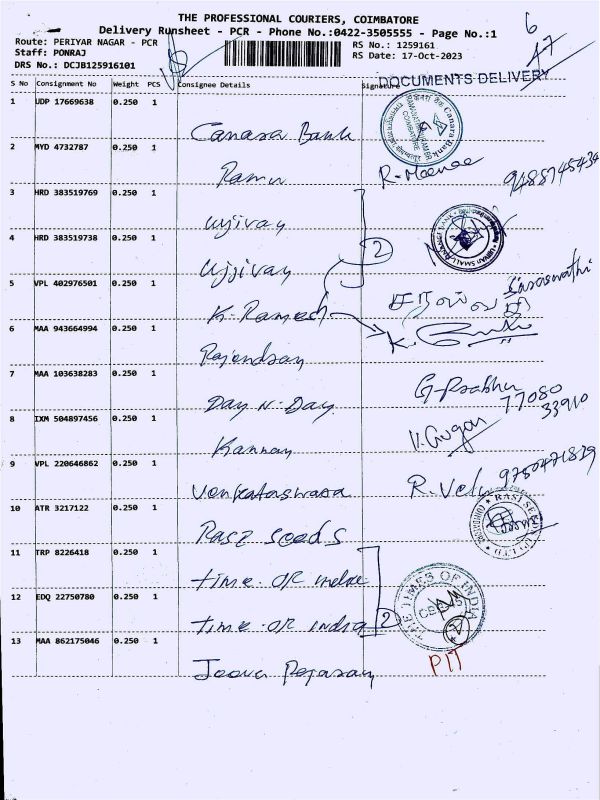 THE PROFESSIONAL COURIERS, COIMBATORE
Delivery Runsheet - PCR - Phone No.:0422-3505555 - Page No.:1
Route: PERIYAR NAGAR - PCR
RS No.: 1259161
Staff: PONRAJ
RS Date: 17-Oct-2023
DRS No.: DCJB125916101
6
47
DOCUMENTS DELIVERY
S No Consignment No Weight PCS Consignee Details Signature
1 UDP 17669638 0.250 1
Canara Bank
2 MYD 4732787 0.250 1
Ramu R-Meenae
9488745434
3 HRD 383519769 0.250 1
ujjivay
4 HRD 383519738 0.250 1
ujjivay
2
5 VPL 402976501 0.250 1
K. Ramesh
Saraswathi
6 MAA 943664994 0.250 1
Rajendran
7 MAA 103638283 0.250 1
Day N. Day G-Prabhu
77080
33910
8 IXM 504897456 0.250 1
Kannan V. Gugan
9 VPL 220646862 0.250 1
Venkataswara R. Velu 9750471829
10 ATR 3217122 0.250 1
Rasi seeds
11 TRP 8226418 0.250 1
time of india
12 EDQ 22750780 0.250 1
time of india
2
THE TIMES OF INDIA
13 MAA 862175046 0.250 1
PIT